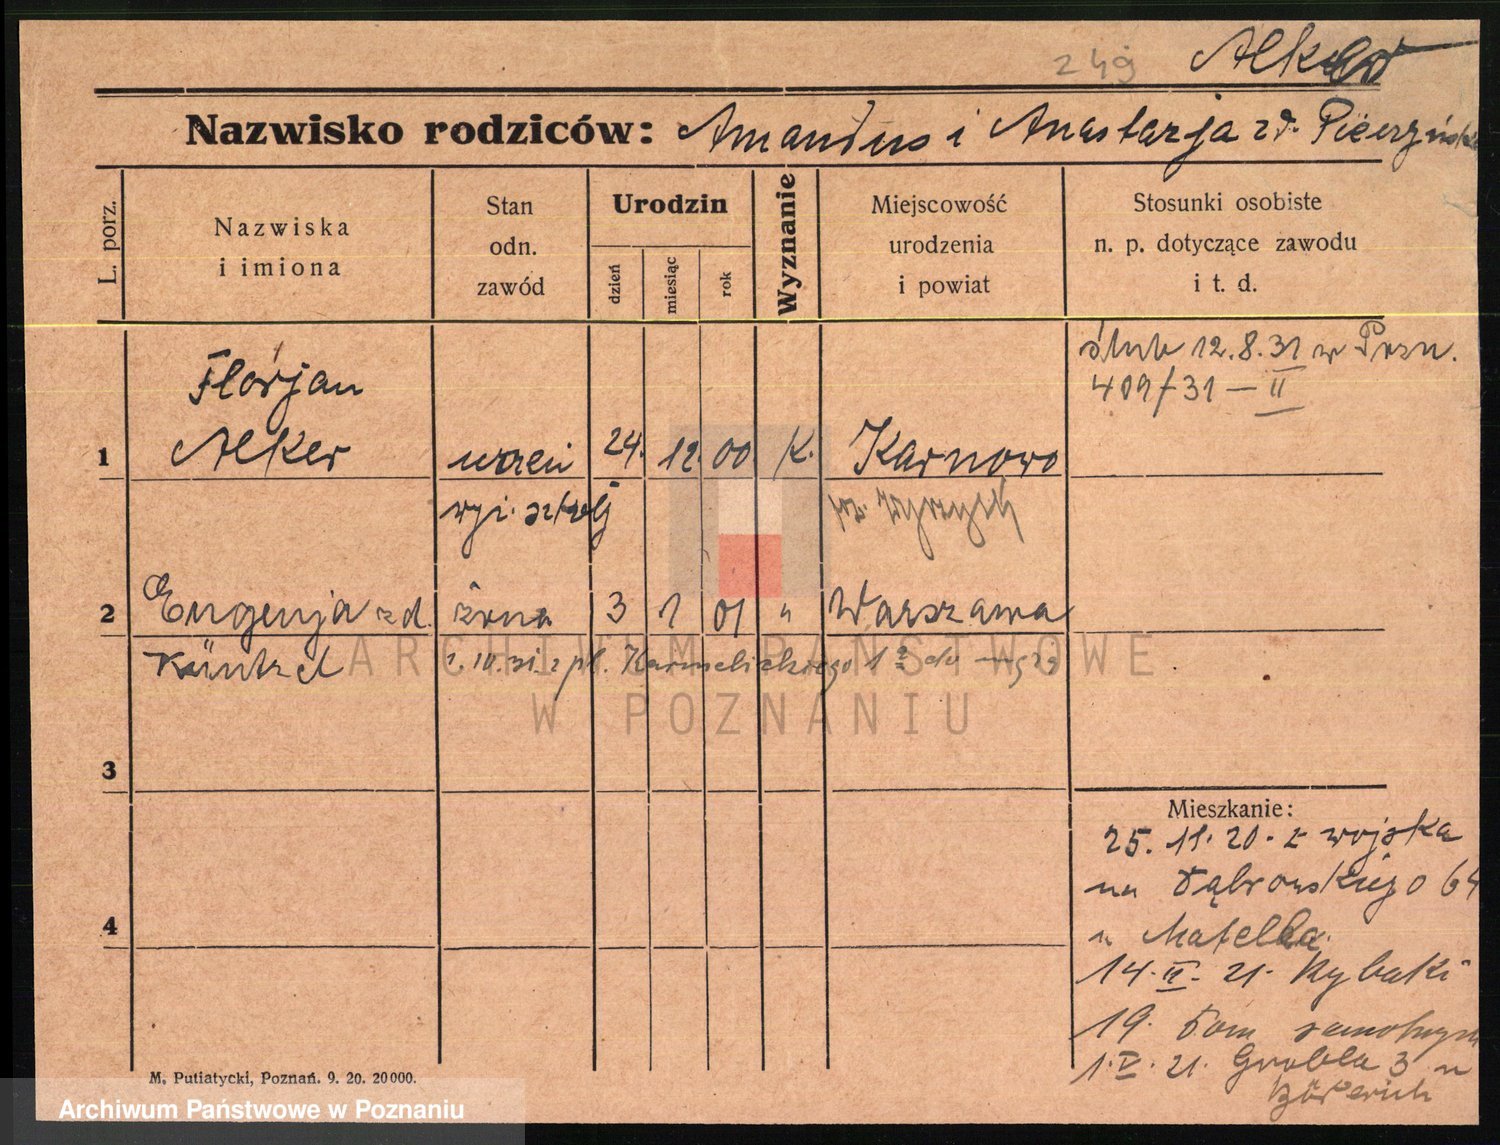 249 Alker
Nazwisko rodziców: Amandus i Anastazja zd. Pieczyńska
L. porz.
Nazwiska
i imiona
Stan
odn.
zawód
Urodzin
dzień
miesiąc
rok
Wyznanie
Miejscowość
urodzenia
i powiat
Stosunki osobiste
n. p. dotyczące zawodu
i t. d.
ślub 12.8.31 w Pozn.
409/31 – II
Florjan
1 Alker uczeń 24. 12. 00 K. Karnowo
wyż. szkoły pz. Wyrzysk
2 Eugenja zd. żona 3 1 01 " Warszawa
Küntzel
2. IV. 31. z pl. Karmelickiego 1 do
ARCHIWUM PAŃSTWOWE
W POZNANIU
3
4
Mieszkanie:
25. 11. 20. z wojska
na Dąbrowskiego 64
u Matella.
14. II. 21. Rybaki
19. Dom
1. V. 21. Grobla 3 u
M. Putiatycki, Poznań. 9. 20. 20000.
Archiwum Państwowe w Poznaniu